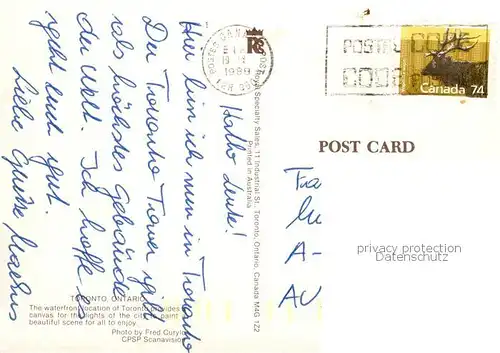 Hallo Leute!
Hier bin ich nun in Toronto
Der Toronto Tower gilt
als höchstes Gebäude
der Welt. Ich hoffe es
geht euch gut.
Liebe Grüße Markus
TORONTO, ONTARIO
The waterfront location of Toronto provides
canvas for the lights of the city to paint
beautiful scene for all to enjoy.
Photo by Fred Curylo
CPSP Scanavision
Royal Specialty Sales, 11 Industrial St., Toronto, Ontario, Canada M4G 1Z2
Printed in Australia
POSTES CANADA POST
1989
POSTAL CODE
CODE
Canada 74
POST CARD
A-
privacy protection
Datenschutz